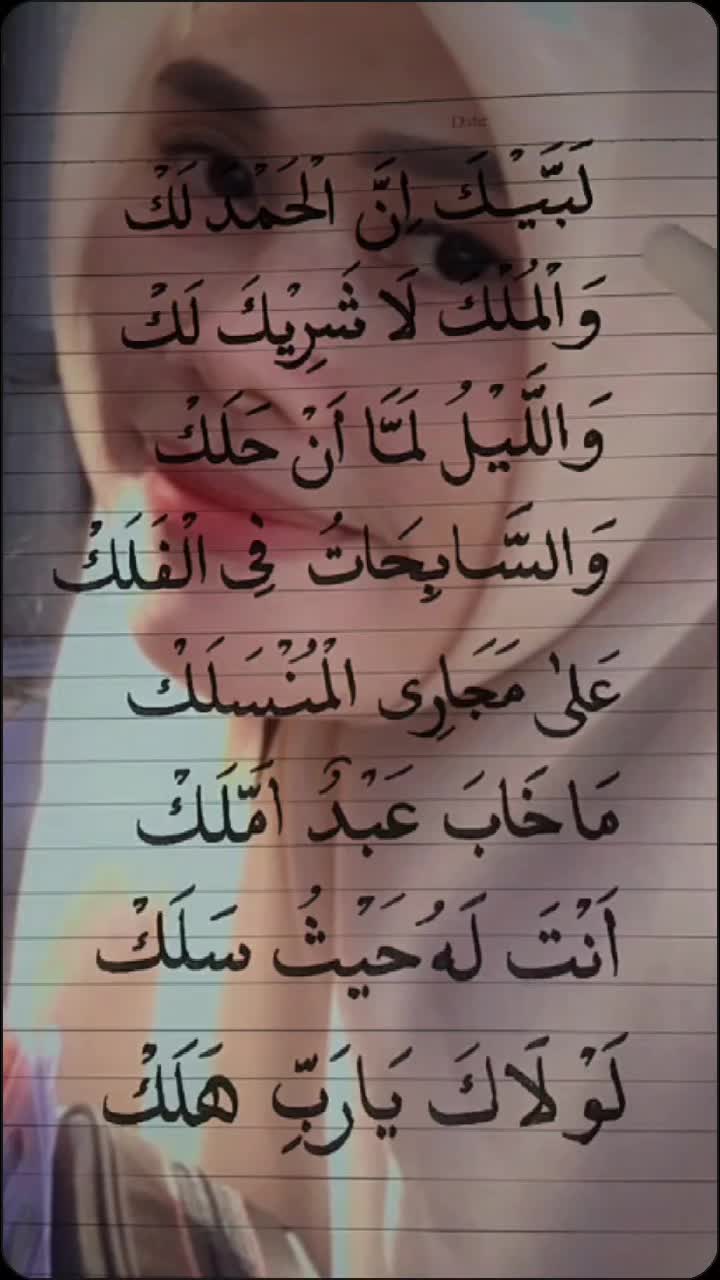 Date
لَبَّيْكَ اِنَّ الْحَمْدَ لَكْ
وَالْمُلْكَ لَا شَرِيْكَ لَكْ
وَاللَّيْلُ لَمَّا أَنْ حَلَكْ
وَالسَّابِحَاتُ فِى الْفَلَكْ
عَلىٰ مَجَارِى الْمُنْسَلَكْ
مَا خَابَ عَبْدٌ اَمَّلَكْ
اَنْتَ لَهُ حَيْثُ سَلَكْ
لَوْلَاكَ يَارَبِّ هَلَكْ